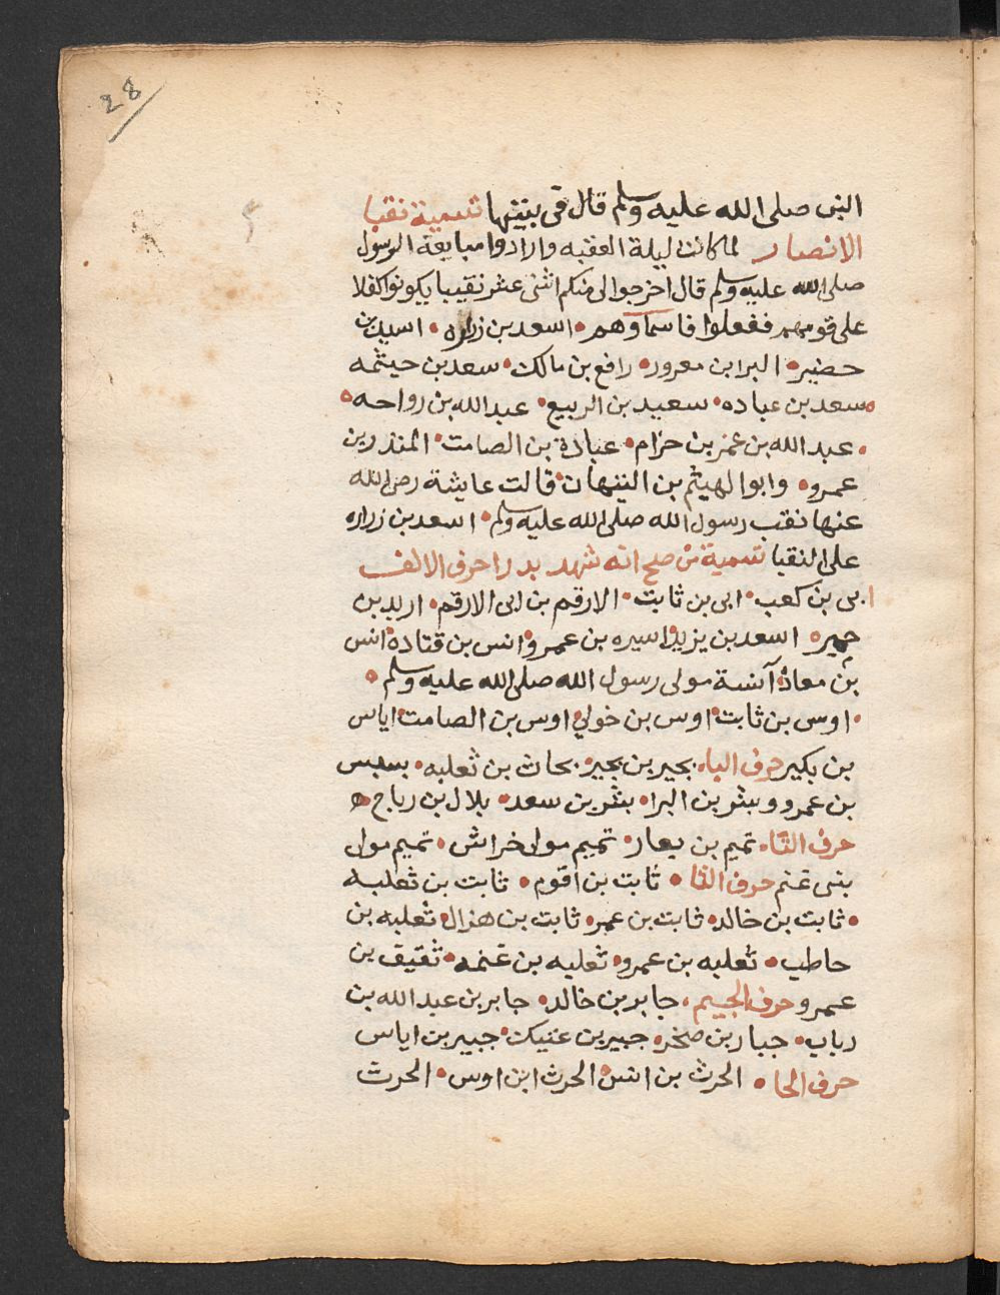 28
النبى صلى الله عليه وسلم قال فى بيتها تسمية نقبا
الانصار لما كانت ليلة العقبه وارادوا مبايعة الرسول
صلى الله عليه وسلم قال اخرجوا الى منكم اثنى عشر نقيبا يكونوا كفلا
على قومهم ففعلوا فاسماوهم • اسعد بن زراره • اسيد بن
حضير • البرا بن معرور • رافع بن مالك • سعد بن حيثمه
• سعد بن عباده • سعيد بن الربيع • عبد الله بن رواحه •
• عبد الله بن عمر بن حزام • عبادة بن الصامت • المنذر بن
عمرو • وابوا لهيثم بن التيهان • قالت عايشة رضى الله
عنها نقب رسول الله صلى الله عليه وسلم • اسعد بن زراره
على النقبا تسمية من صح انه شهد بدرا حرف الالف
ابى بن كعب • ابى بن ثابت • الارقم بن ابى الارقم • اربد بن
حمير • اسعد بن يزيد • اسيره بن عمرو • انس بن قتاده • انس
بن معاذ • آنسة مولى رسول الله صلى الله عليه وسلم •
• اوس بن ثابت • اوس بن خولي • اوس بن الصامت • اياس
بن بكير حرف البا • بجير بن بجير • بحاث بن ثعلبه • بسبس
بن عمرو وبشر بن البرا • بشر بن سعد • بلال بن رباح ه
حرف التا • تميم بن يعار • تميم مولى خراش • تميم مولى
بنى غنم حرف الثا • ثابت بن اقوم • ثابت بن ثعلبه
• ثابت بن خالد • ثابت بن عمر • ثابت بن هزال • ثعلبه بن
حاطب • ثعلبه بن عمرو • ثعلبه بن غنمه • ثقيف بن
عمرو حرف الجيم • جابر بن خالد • جابر بن عبد الله بن
رباب • جبار بن صخر • جبير بن عتيك • جبير بن اياس
حرف الحا • الحرث بن انس • الحرث ابن اوس • الحرث